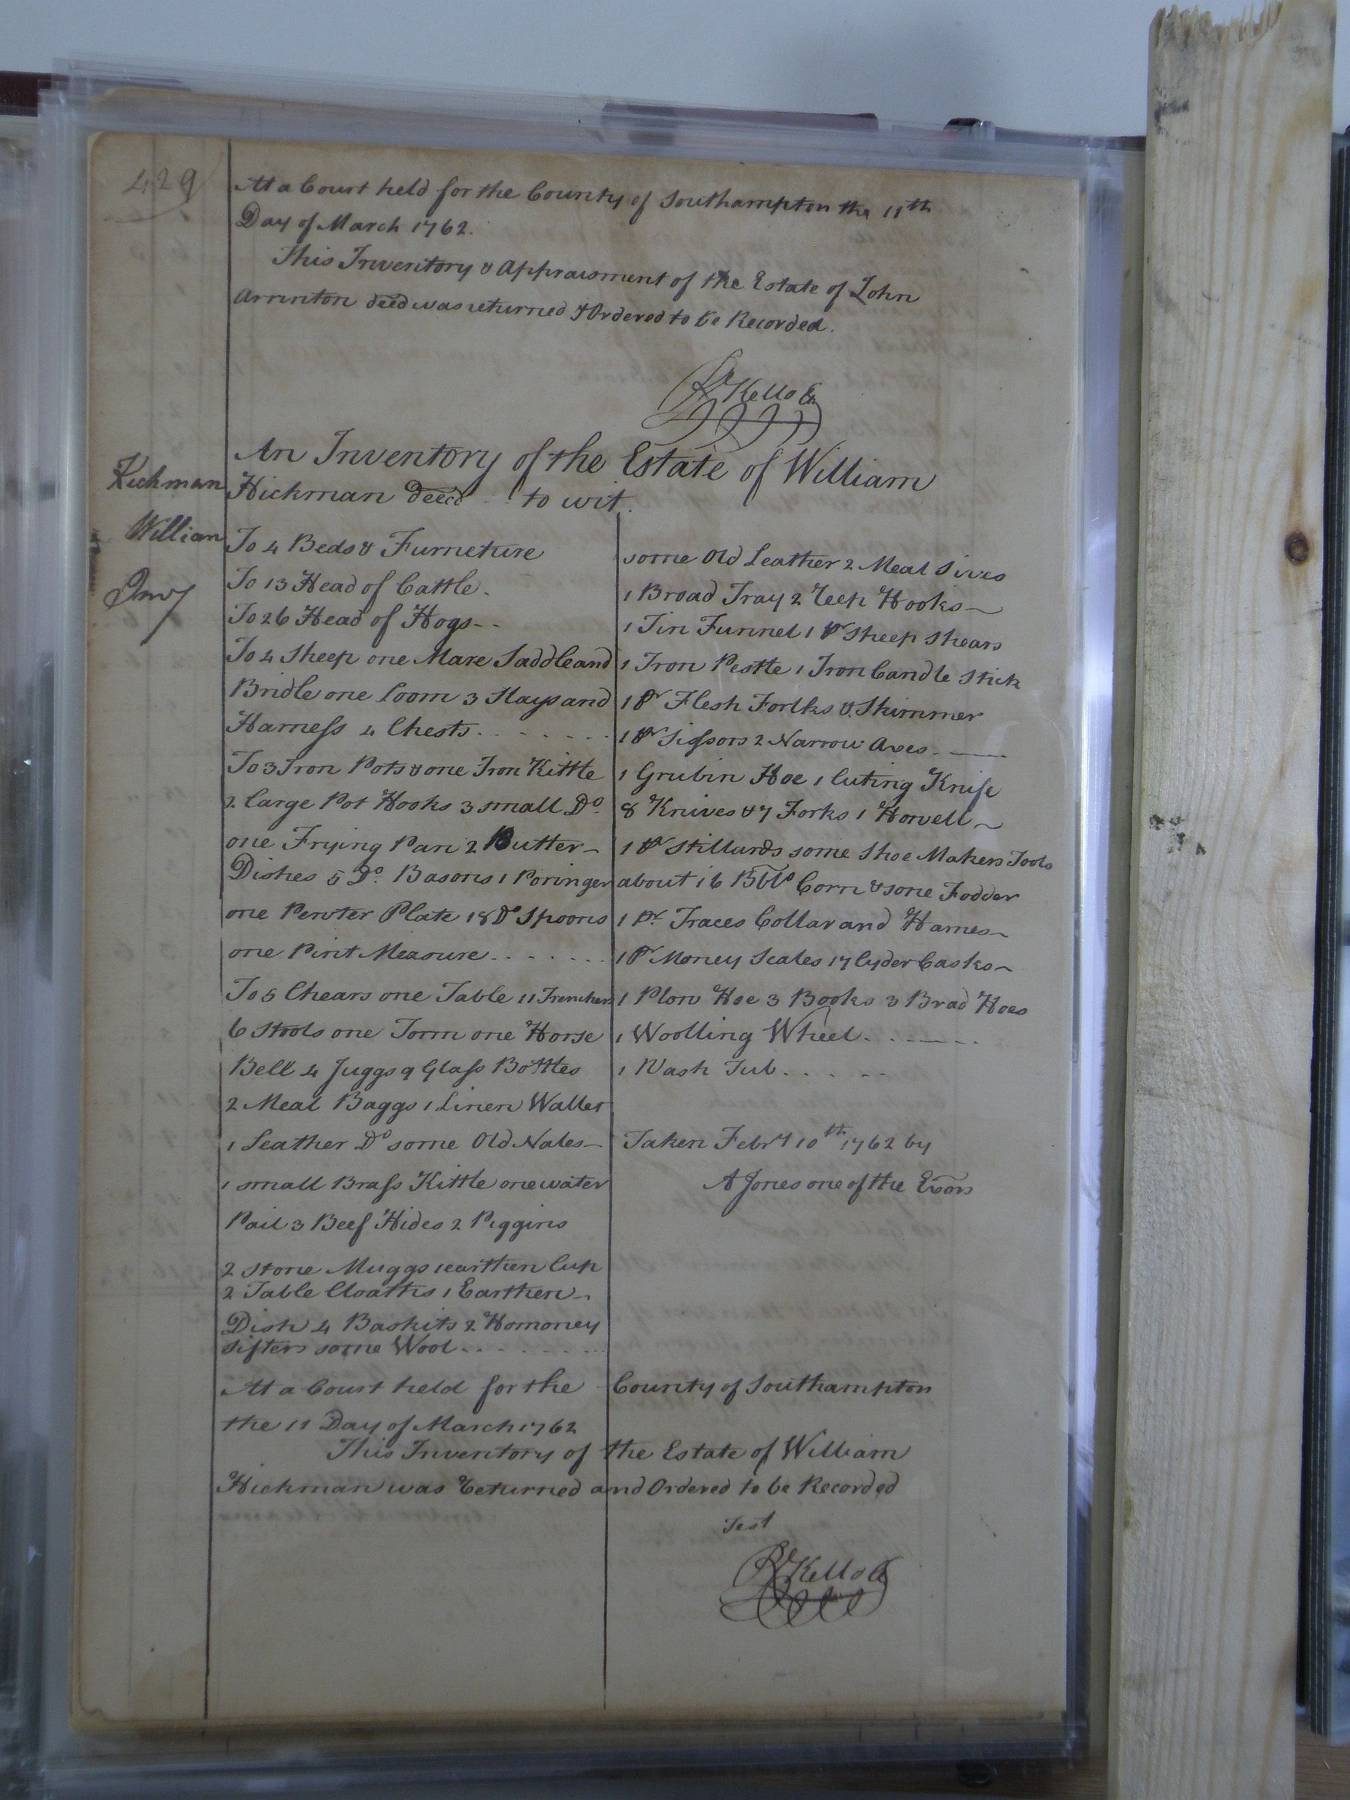 429
At a Court held for the County of Southampton the 11th
Day of March 1762.
This Inventory & Appraisment of the Estate of John
Arrinton deced was returned & Ordered to be Recorded.
Rd Kello Ck
An Inventory of the Estate of William
Hickman deced to wit.
Hickman
William
Invy
To 4 Beds & Furneture
To 13 Head of Cattle.
To 26 Head of Hogs--
To 4 Sheep one Mare Saddle and
Bridle one Loom 3 Slays and
Harness 4 Chests.......
To 3 Iron Pots & one Iron Kittle
2 Large Pot Hooks 3 small Do.
one Frying Pan 2 Butter-
Dishes 5 Do. Basons 1 Poringer
one Pewter Plate 18 Do Spoons
one Pint Measure.......
To 5 Chears one Table 11 Trenchers
6 Stools one Form one Horse
Bell 4 Juggs 9 Glass Bottles
2 Meal Baggs 1 Linen Wallet
1 Leather Do some Old Nales-
1 small Brass Kittle one water
Pail 3 Beef Hides 2 Piggins
2 stone Muggs 1 earthen Cup
2 Table Cloaths 1 Earthen-
Dish 4 Baskits 2 Homoney
sifters some Wool........
some Old Leather 2 Meal Sives
1 Broad Tray 2 Reep Hooks-
1 Tin Funnel 1 pr Sheep Shears
1 Iron Pestle 1 Iron Candle Stick
1 pr Flesh Forlks & Skimmer
1 pr Sissors 2 Narrow Axes.-
1 Grubin Hoe 1 Cuting Knife
8 Knives & 7 Forks 1 Howell-
1 pr Stillurds some Shoe Makers Tools
about 16 Bbls Corn & some Fodder
1 Pr. Traces Collar and Hames-
1 pr Money Scales 17 Cyder Casks-
1 Plow Hoe 3 Books 3 Brad Hoes
1 Woolling Wheel......
1 Wash Tub.....
Taken Febry 10th 1762 by
A Jones one of the Exors
At a Court held for the County of Southampton
the 11 Day of March 1762
This Inventory of the Estate of William
Hickman was Returned and Ordered to be Recorded
Test
Rd Kello Ck